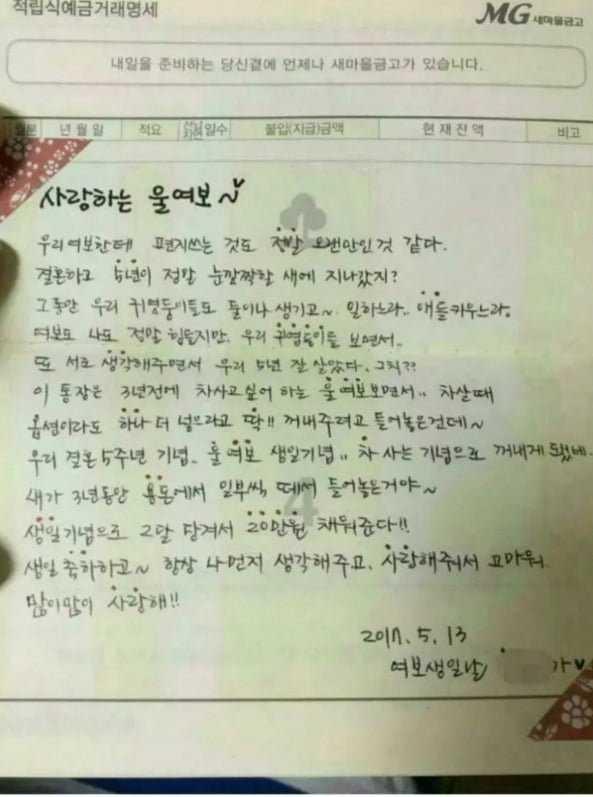 적립식예금거래명세
MG 새마을금고
내일을 준비하는 당신곁에 언제나 새마을금고가 있습니다.
월분 년월일 적요 일수 불입(지급)금액 현재잔액 비고
사랑하는 울여보~♥
우리여보한테 편지쓰는 것도 정말 오랜만인것 같다.
결혼하고 5년이 정말 눈깜짝할 새에 지나갔지?
그동안 우리 귀염둥이들도 둘이나 생기고~ 일하느라.. 애들키우느라.
여보도 나도 정말 힘들지만. 우리 귀염둥이들 보면서..
또 서로 생각해주면서 우리 5년 잘 살았다. 그치??
이 통장은 3년전에 차사고싶어 하는 울여보보면서.. 차살때
옵션이라도 하나 더 넣으라고 딱!! 꺼내주려고 들어놓은건데~
우리 결혼 5주년 기념.. 울여보 생일기념.. 차 사는 기념으로 꺼내게 됐네.
내가 3년동안 용돈에서 일부씩 떼서 들어놓은거야~
4
생일기념으로 2달 당겨서 20만원 채워준다!!
생일 축하하고~ 항상 나먼저 생각해주고, 사랑해줘서 고마워
많이많이 사랑해!!
2017. 5. 13
여보생일날 가♥